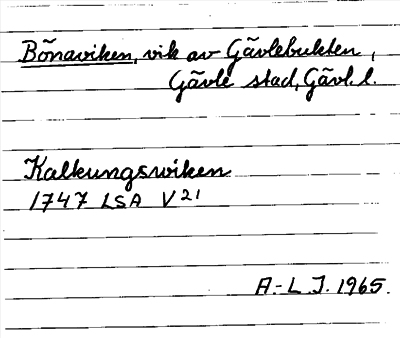 Bönaviken, vik av Gävlebukten,
Gävle stad, Gävl. l.
Kalkungswiken
1747 LSA V21
A.-L J. 1965.